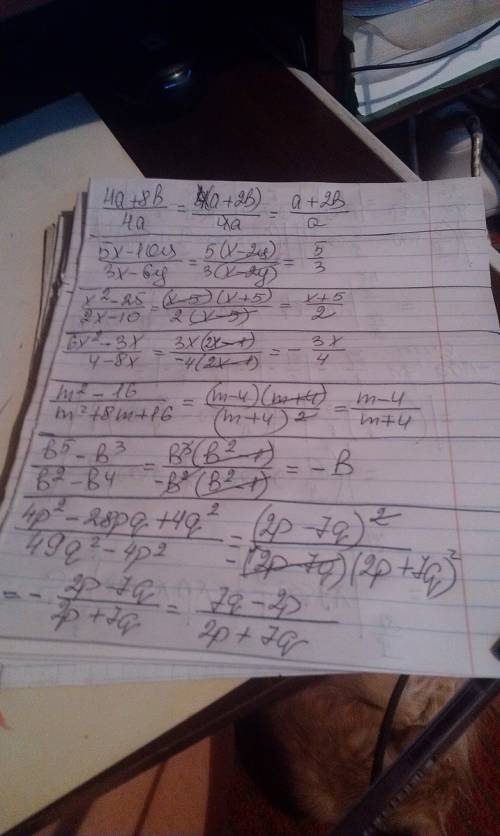 (4a+8b)/(4a) = (4(a+2b))/(4a) = (a+2b)/a
(5x-10y)/(3x-6y) = (5(x-2y))/(3(x-2y)) = 5/3
(x²-25)/(2x-10) = ((x-5)(x+5))/(2(x-5)) = (x+5)/2
(6x²-3x)/(4-8x) = (3x(2x-1))/(-4(2x-1)) = -(3x)/4
(m²-16)/(m²+8m+16) = ((m-4)(m+4))/((m+4)²) = (m-4)/(m+4)
(b⁵-b³)/(b²-b⁴) = (b³(b²-1))/(-b²(b²-1)) = -b
(4p²-28pq+4q²)/(49q²-4p²) = ((2p-7q)²)/(-(2p-7q)(2p+7q))
= -(2p-7q)/(2p+7q) = (7q-2p)/(2p+7q)